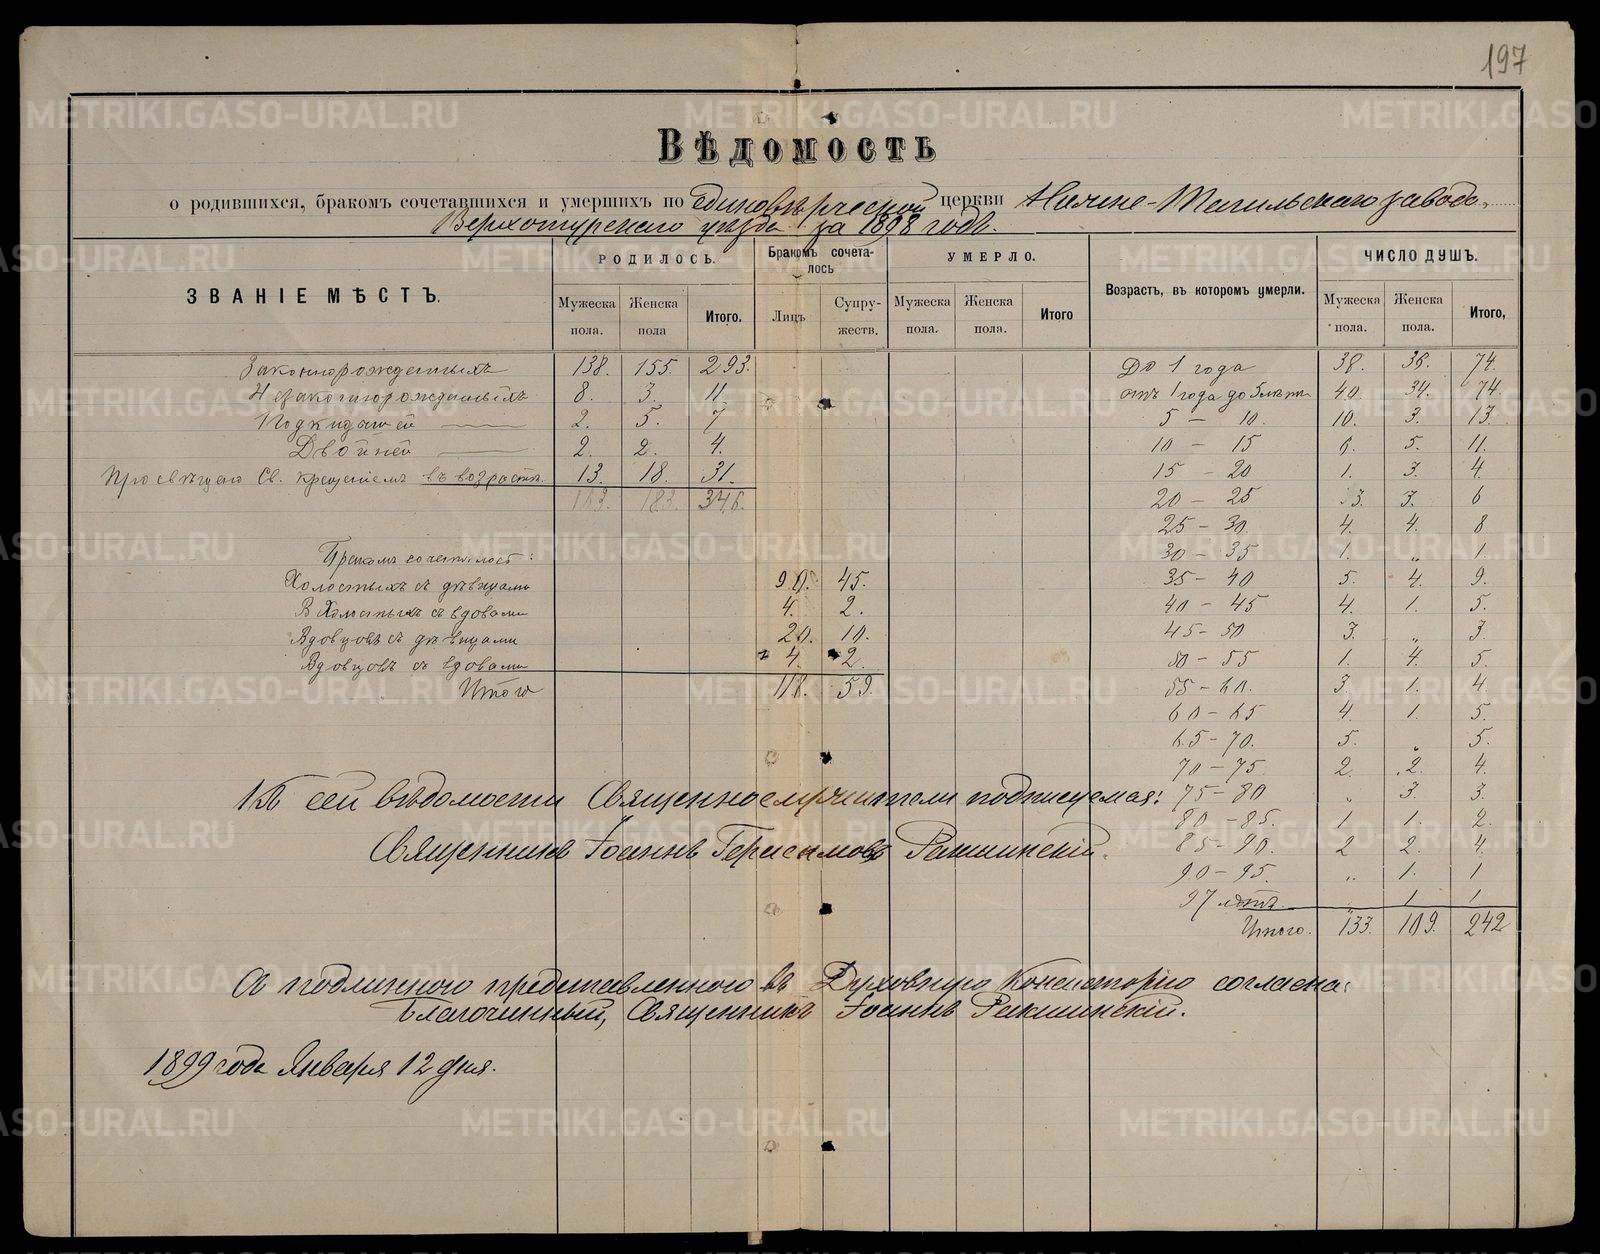 197
Вѣдомость
о родившихся, бракомъ сочетавшихся и умершихъ по Единовѣрческой церкви Нижне-Тагильскаго завода,
Верхотурскаго уѣзда за 1898 годъ.
ЗВАНІЕ МѢСТЪ. РОДИЛОСЬ. Бракомъ сочета-лось УМЕРЛО. Возрастъ, въ которомъ умерли. ЧИСЛО ДУШЪ.
Мужеска пола. Женска пола Итого. Лицъ Супру-жествъ. Мужеска пола. Женска пола. Итого Мужеска пола. Женска пола. Итого,
Законнорожденныхъ 138. 155. 293. До 1 года 38. 36. 74.
Незаконнорожденныхъ 8. 3. 11. отъ 1 года до 5 лѣтъ 40. 34. 74.
Подкидышей 2. 5. 7 5 – 10. 10. 3. 13.
Двойней 2. 2. 4. 10 – 15 6. 5. 11.
Просвѣщено Св. Крещеніемъ въ возрастѣ 13. 18. 31. 15 – 20 1. 3. 4.
163. 183. 346. 20 – 25 3. 3. 6
25 – 30 4. 4. 8
Бракомъ сочеталось: 30 – 35 1. „ 1.
Холостыхъ съ дѣвицами 90. 45. 35 – 40 5. 4. 9.
Холостыхъ съ вдовами 4. 2. 40 – 45 4. 1. 5.
Вдовцовъ съ дѣвицами 20. 10. 45 – 50 3. „ 3.
Вдовцовъ съ вдовами 4. 2. 50 – 55 1. 4. 5.
Итого 118. 59. 55 – 60. 3. 1. 4.
60 – 65 4. 1. 5.
65 – 70. 5. „ 5.
70 – 75 2. 2. 4.
Къ сей вѣдомости Священноcлужители подписуемся: 75 – 80 „ 3 3.
80 – 85. 1. 1. 2.
Священникъ Іоаннъ Герасимовъ Ракшинскій. 85 – 90. 2 2. 4.
90 – 95. „ 1. 1
97 лѣтъ „ 1 1
Итого. 133. 109. 242
Съ подлиннаго представленнаго въ Духовную Консисторію согласна:
Благочинный, Священникъ Іоаннъ Ракшинскій.
1899 года Января 12 дня.
METRIKI.GASO-URAL.RU